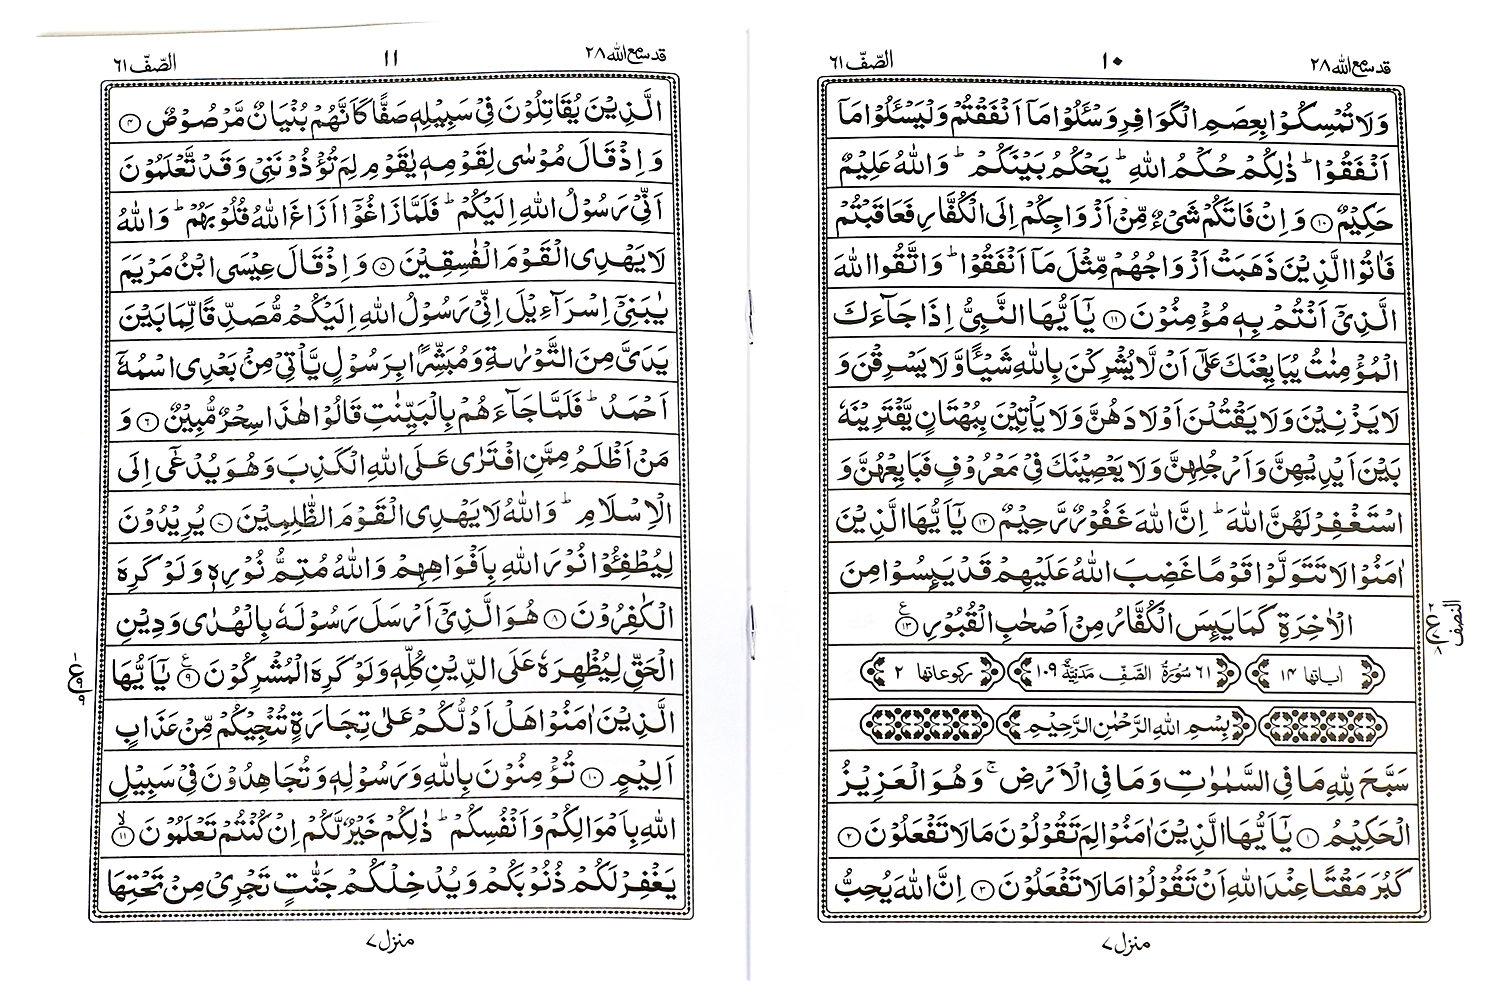 قد سمع الله ٢٨
١٠
الصّفّ ٦١
وَلَا تُمْسِكُوْا بِعِصَمِ الْكَوَافِرِ وَسْـَٔلُوْا مَاۤ اَنْفَقْتُمْ وَلْيَسْـَٔلُوْا مَاۤ
اَنْفَقُوْا ؕ ذٰلِكُمْ حُكْمُ اللّٰهِ ؕ يَحْكُمُ بَيْنَكُمْ ؕ وَاللّٰهُ عَلِيْمٌ
حَكِيْمٌ ⑩ وَاِنْ فَاتَكُمْ شَىْءٌ مِّنْ اَزْوَاجِكُمْ اِلَى الْكُفَّارِ فَعَاقَبْتُمْ
فَاٰتُوا الَّذِيْنَ ذَهَبَتْ اَزْوَاجُهُمْ مِّثْلَ مَاۤ اَنْفَقُوْا ؕ وَاتَّقُوا اللّٰهَ
الَّذِىْۤ اَنْتُمْ بِهٖ مُؤْمِنُوْنَ ⑪ يٰۤاَيُّهَا النَّبِىُّ اِذَا جَآءَكَ
الْمُؤْمِنٰتُ يُبَايِعْنَكَ عَلٰٓى اَنْ لَّا يُشْرِكْنَ بِاللّٰهِ شَيْـًٔا وَّلَا يَسْرِقْنَ وَ
لَا يَزْنِيْنَ وَلَا يَقْتُلْنَ اَوْلَادَهُنَّ وَلَا يَاْتِيْنَ بِبُهْتَانٍ يَّفْتَرِيْنَهٗ
بَيْنَ اَيْدِيْهِنَّ وَاَرْجُلِهِنَّ وَلَا يَعْصِيْنَكَ فِىْ مَعْرُوْفٍ فَبَايِعْهُنَّ وَ
اسْتَغْفِرْ لَهُنَّ اللّٰهَ ؕ اِنَّ اللّٰهَ غَفُوْرٌ رَّحِيْمٌ ⑫ يٰۤاَيُّهَا الَّذِيْنَ
اٰمَنُوْا لَا تَتَوَلَّوْا قَوْمًا غَضِبَ اللّٰهُ عَلَيْهِمْ قَدْ يَىِٕسُوْا مِنَ
الْاٰخِرَةِ كَمَا يَىِٕسَ الْكُفَّارُ مِنْ اَصْحٰبِ الْقُبُوْرِ ⑬ ع
النصف
٢ ع ٧ ٨
اٰياتها ١٤ ٦١ سُوْرَةُ الصَّفِّ مَدَنِيَّةٌ ١٠٩ ركوعاتها ٢
بِسْمِ اللّٰهِ الرَّحْمٰنِ الرَّحِيْمِ
سَبَّحَ لِلّٰهِ مَا فِى السَّمٰوٰتِ وَمَا فِى الْاَرْضِ ۚ وَهُوَ الْعَزِيْزُ
الْحَكِيْمُ ① يٰۤاَيُّهَا الَّذِيْنَ اٰمَنُوْا لِمَ تَقُوْلُوْنَ مَا لَا تَفْعَلُوْنَ ②
كَبُرَ مَقْتًا عِنْدَ اللّٰهِ اَنْ تَقُوْلُوْا مَا لَا تَفْعَلُوْنَ ③ اِنَّ اللّٰهَ يُحِبُّ
منزل ٧
قد سمع الله ٢٨
١١
الصّفّ ٦١
الَّذِيْنَ يُقَاتِلُوْنَ فِىْ سَبِيْلِهٖ صَفًّا كَاَنَّهُمْ بُنْيَانٌ مَّرْصُوْصٌ ④
وَاِذْ قَالَ مُوْسٰى لِقَوْمِهٖ يٰقَوْمِ لِمَ تُؤْذُوْنَنِىْ وَقَدْ تَّعْلَمُوْنَ
اَنِّىْ رَسُوْلُ اللّٰهِ اِلَيْكُمْ ؕ فَلَمَّا زَاغُوْۤا اَزَاغَ اللّٰهُ قُلُوْبَهُمْ ؕ وَاللّٰهُ
لَا يَهْدِى الْقَوْمَ الْفٰسِقِيْنَ ⑤ وَاِذْ قَالَ عِيْسَى ابْنُ مَرْيَمَ
يٰبَنِىْۤ اِسْرَآءِيْلَ اِنِّىْ رَسُوْلُ اللّٰهِ اِلَيْكُمْ مُّصَدِّقًا لِّمَا بَيْنَ
يَدَىَّ مِنَ التَّوْرٰىةِ وَمُبَشِّرًۢا بِرَسُوْلٍ يَّاْتِىْ مِنْۢ بَعْدِى اسْمُهٗۤ
اَحْمَدُ ؕ فَلَمَّا جَآءَهُمْ بِالْبَيِّنٰتِ قَالُوْا هٰذَا سِحْرٌ مُّبِيْنٌ ⑥ وَ
مَنْ اَظْلَمُ مِمَّنِ افْتَرٰى عَلَى اللّٰهِ الْكَذِبَ وَهُوَ يُدْعٰٓى اِلَى
الْاِسْلَامِ ؕ وَاللّٰهُ لَا يَهْدِى الْقَوْمَ الظّٰلِمِيْنَ ⑦ يُرِيْدُوْنَ
لِيُطْفِـُٔوْا نُوْرَ اللّٰهِ بِاَفْوَاهِهِمْ وَاللّٰهُ مُتِمُّ نُوْرِهٖ وَلَوْ كَرِهَ
الْكٰفِرُوْنَ ⑧ هُوَ الَّذِىْۤ اَرْسَلَ رَسُوْلَهٗ بِالْهُدٰى وَدِيْنِ
الْحَقِّ لِيُظْهِرَهٗ عَلَى الدِّيْنِ كُلِّهٖ وَلَوْ كَرِهَ الْمُشْرِكُوْنَ ⑨ ع يٰۤاَيُّهَا
١ ع ٩ ٩
الَّذِيْنَ اٰمَنُوْا هَلْ اَدُلُّكُمْ عَلٰى تِجَارَةٍ تُنْجِيْكُمْ مِّنْ عَذَابٍ
اَلِيْمٍ ⑩ تُؤْمِنُوْنَ بِاللّٰهِ وَرَسُوْلِهٖ وَتُجَاهِدُوْنَ فِىْ سَبِيْلِ
اللّٰهِ بِاَمْوَالِكُمْ وَاَنْفُسِكُمْ ؕ ذٰلِكُمْ خَيْرٌ لَّكُمْ اِنْ كُنْتُمْ تَعْلَمُوْنَ ⑪ ۙ
يَغْفِرْ لَكُمْ ذُنُوْبَكُمْ وَيُدْخِلْكُمْ جَنّٰتٍ تَجْرِىْ مِنْ تَحْتِهَا
منزل ٧